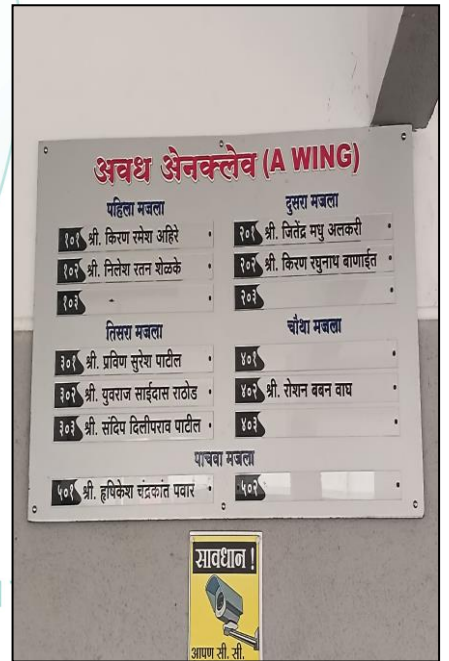 अवध ॲनक्लेव (A WING)
पहिला मजला
१०१ श्री. किरण रमेश अहिरे
१०२ श्री. निलेश रतन शेळके
१०३ -
दुसरा मजला
२०१ श्री. जितेंद्र मधु अलकरी
२०२ श्री. किरण रघुनाथ बाणाईत
२०३
तिसरा मजला
३०१ श्री. प्रविण सुरेश पाटील
३०२ श्री. युवराज साईदास राठोड
३०३ श्री. संदिप दिलीपराव पाटील
चौथा मजला
४०१
४०२ श्री. रोशन बबन वाघ
४०३
पाचवा मजला
५०१ श्री. हृषिकेश चंद्रकांत पवार
५०२
सावधान !
आपण सी. सी.